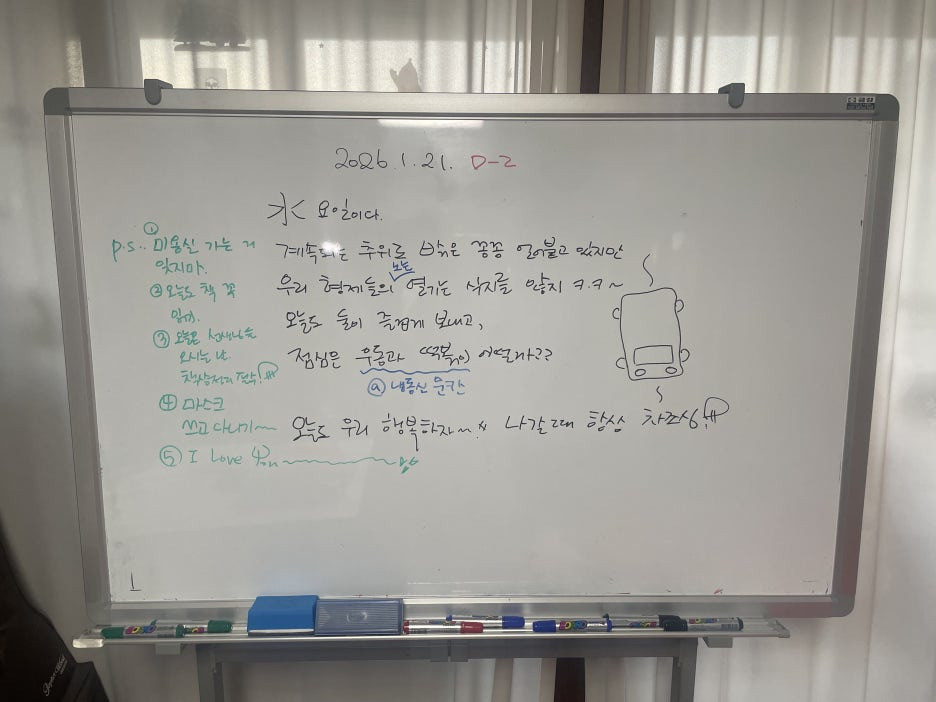 2026.1.21. D-2
水요일이다.
계속되는 추위로 밖은 꽁꽁 얼어붙고 있지만
노는
우리 형제들의 열기는 식지를 않지 ㅋ.ㅋ~
오늘도 둘이 즐겁게 보내고,
점심은 우동과 떡볶이 어떨까??
@ 냉동실 문칸
오늘도 우리 행복하자~ 나갈 때 항상 차조심!!!
p.s.. ① 미용실 가는 거
잊지마.
② 오늘도 책 꼭
읽기.
③ 오늘은 선생님
오시는 날.
!!!
④ 마스크
쓰고 다니기~
⑤ I Love You